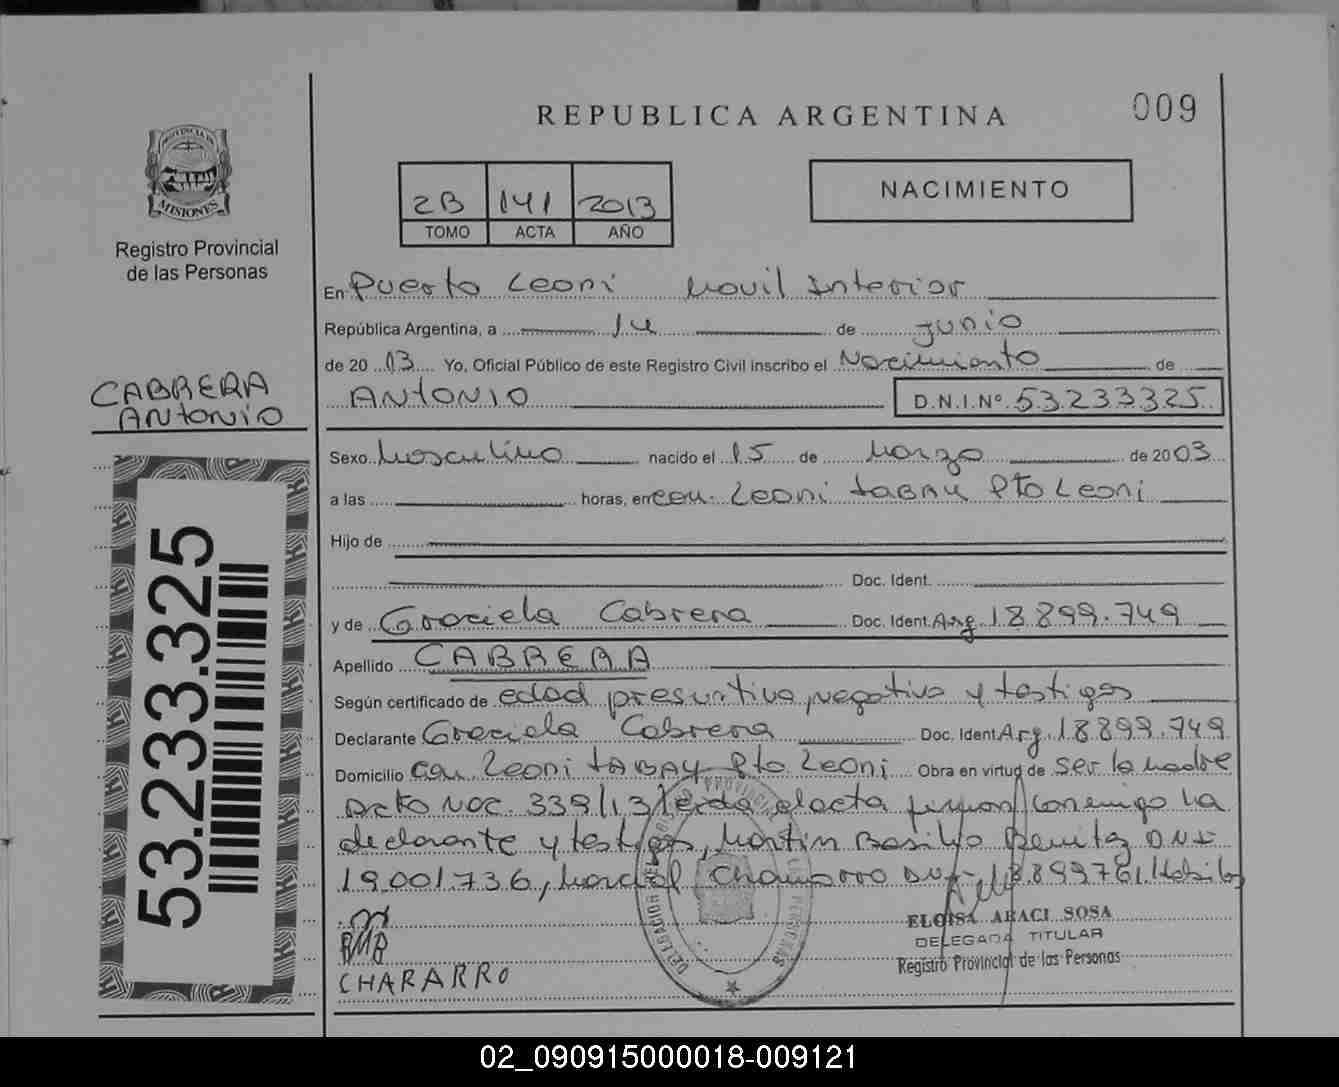 REPUBLICA ARGENTINA
009
PROVINCIA DE
MISIONES
Registro Provincial
de las Personas
2B 141 2013
TOMO ACTA AÑO
NACIMIENTO
En Puerto Leoni Movil Interior
República Argentina, a 14 de Junio
de 20 13 Yo, Oficial Público de este Registro Civil inscribo el Nacimiento de
CABRERA
ANTONIO
ANTONIO D.N.I.Nº 53233325
Sexo Masculino nacido el 15 de Marzo de 2003
a las horas, en Com. Leoni tabay Pto Leoni
Hijo de
Doc. Ident.
y de Graciela Cabrera Doc. Ident. Arg. 18.899.749
Apellido CABRERA
Según certificado de edad presuntiva, negativa y testigos
Declarante Graciela Cabrera Doc. Ident Arg. 18.899.749
Domicilio Com Leoni tABAY Pto. Leoni Obra en virtud de ser la madre
Acto Nac. 339/13 leida el acta firman conmigo la
declarante y testigos, Martin Basilio Benitez DNI
19001736, Marcial Chamorro DNI 18.899761. Habiles
53.233.325
BMB
CHARARRO
ELOISA ARACI SOSA
DELEGADA TITULAR
Registro Provincial de las Personas
02_090915000018-009121